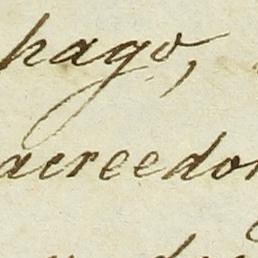 pago,
acreedor